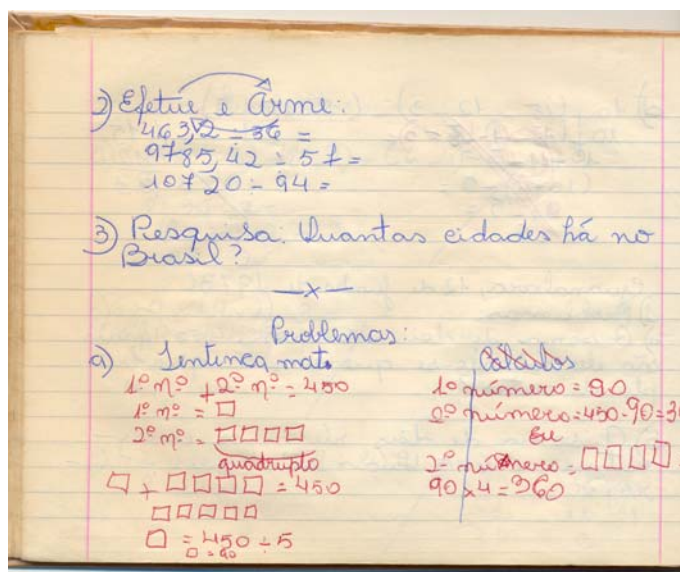 2) Efetue e Arme:
463,12 ÷ 36 =
9785,42 ÷ 57 =
10720 ÷ 94 =
3) Pesquisa: Quantas cidades há no
Brasil?
—x—
Problemas:
a) Sentença mat.
1º nº + 2º nº = 450
1º nº = □
2º nº = □□□□
quadruplo
□ + □□□□ = 450
□□□□□
□ = 450 ÷ 5
□ = 90
Cálculos
1º número = 90
2º número = 450 - 90 = 3
ou
2º número = □□□□
90 x 4 = 360